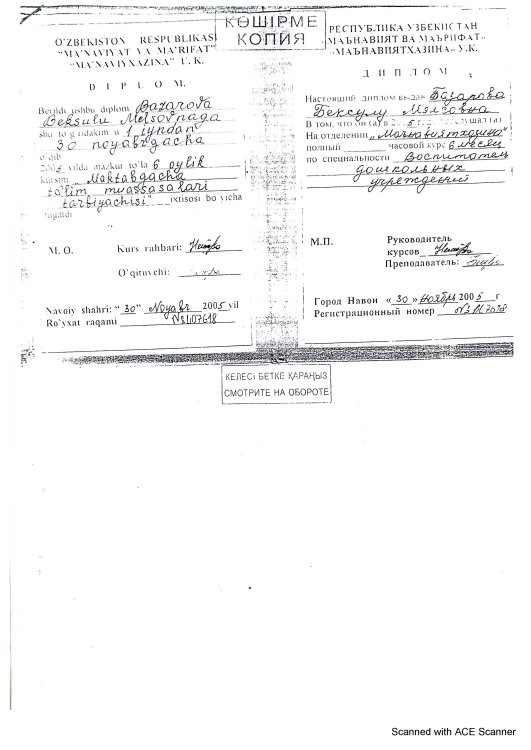 КӨШІРМЕ
КОПИЯ
O'ZBEKISTON RESPUBLIKASI
"MA'NAVIYAT VA MA'RIFAT"
"MA'NAVIYXAZINA" U. K.
D I P L O M
Berildi ushbu diplom Bazarova
Beksulu Melsovnaga
shu to'g'ridakim u 1 iyundan
30 noyabrgacha
o'qib
2005 yilda mazkur to'la 6 oylik
kursini "Maktabgacha
ta'lim muassasalari
tarbiyachisi" ixtisosi bo'yicha
tugatdi
M. O. Kurs rahbari:
O'qituvchi:
Navoiy shahri: "30" Noyabr 2005 yil
Ro'yxat raqami
РЕСПУБЛИКА УЗБЕКИСТАН
"МАЪНАВИЯТ ВА МАЪРИФАТ"
"МАЪНАВИЯТХАЗИНА" У.К.
Д И П Л О М
Настоящий диплом выдан Базарова
Бексулу Мэлсовна
В том, что он (а) в 2005 г. прослушал (а)
На отделении „Маънавиятхазина"
полный часовой курс 6 месяц
по специальности Воспитатель
дошкольных
учреждений
М.П. Руководитель
курсов
Преподаватель:
Город Навои « 30 » ноября 2005 г
Регистрационный номер
КЕЛЕСІ БЕТКЕ ҚАРАҢЫЗ
СМОТРИТЕ НА ОБОРОТЕ
Scanned with ACE Scanner